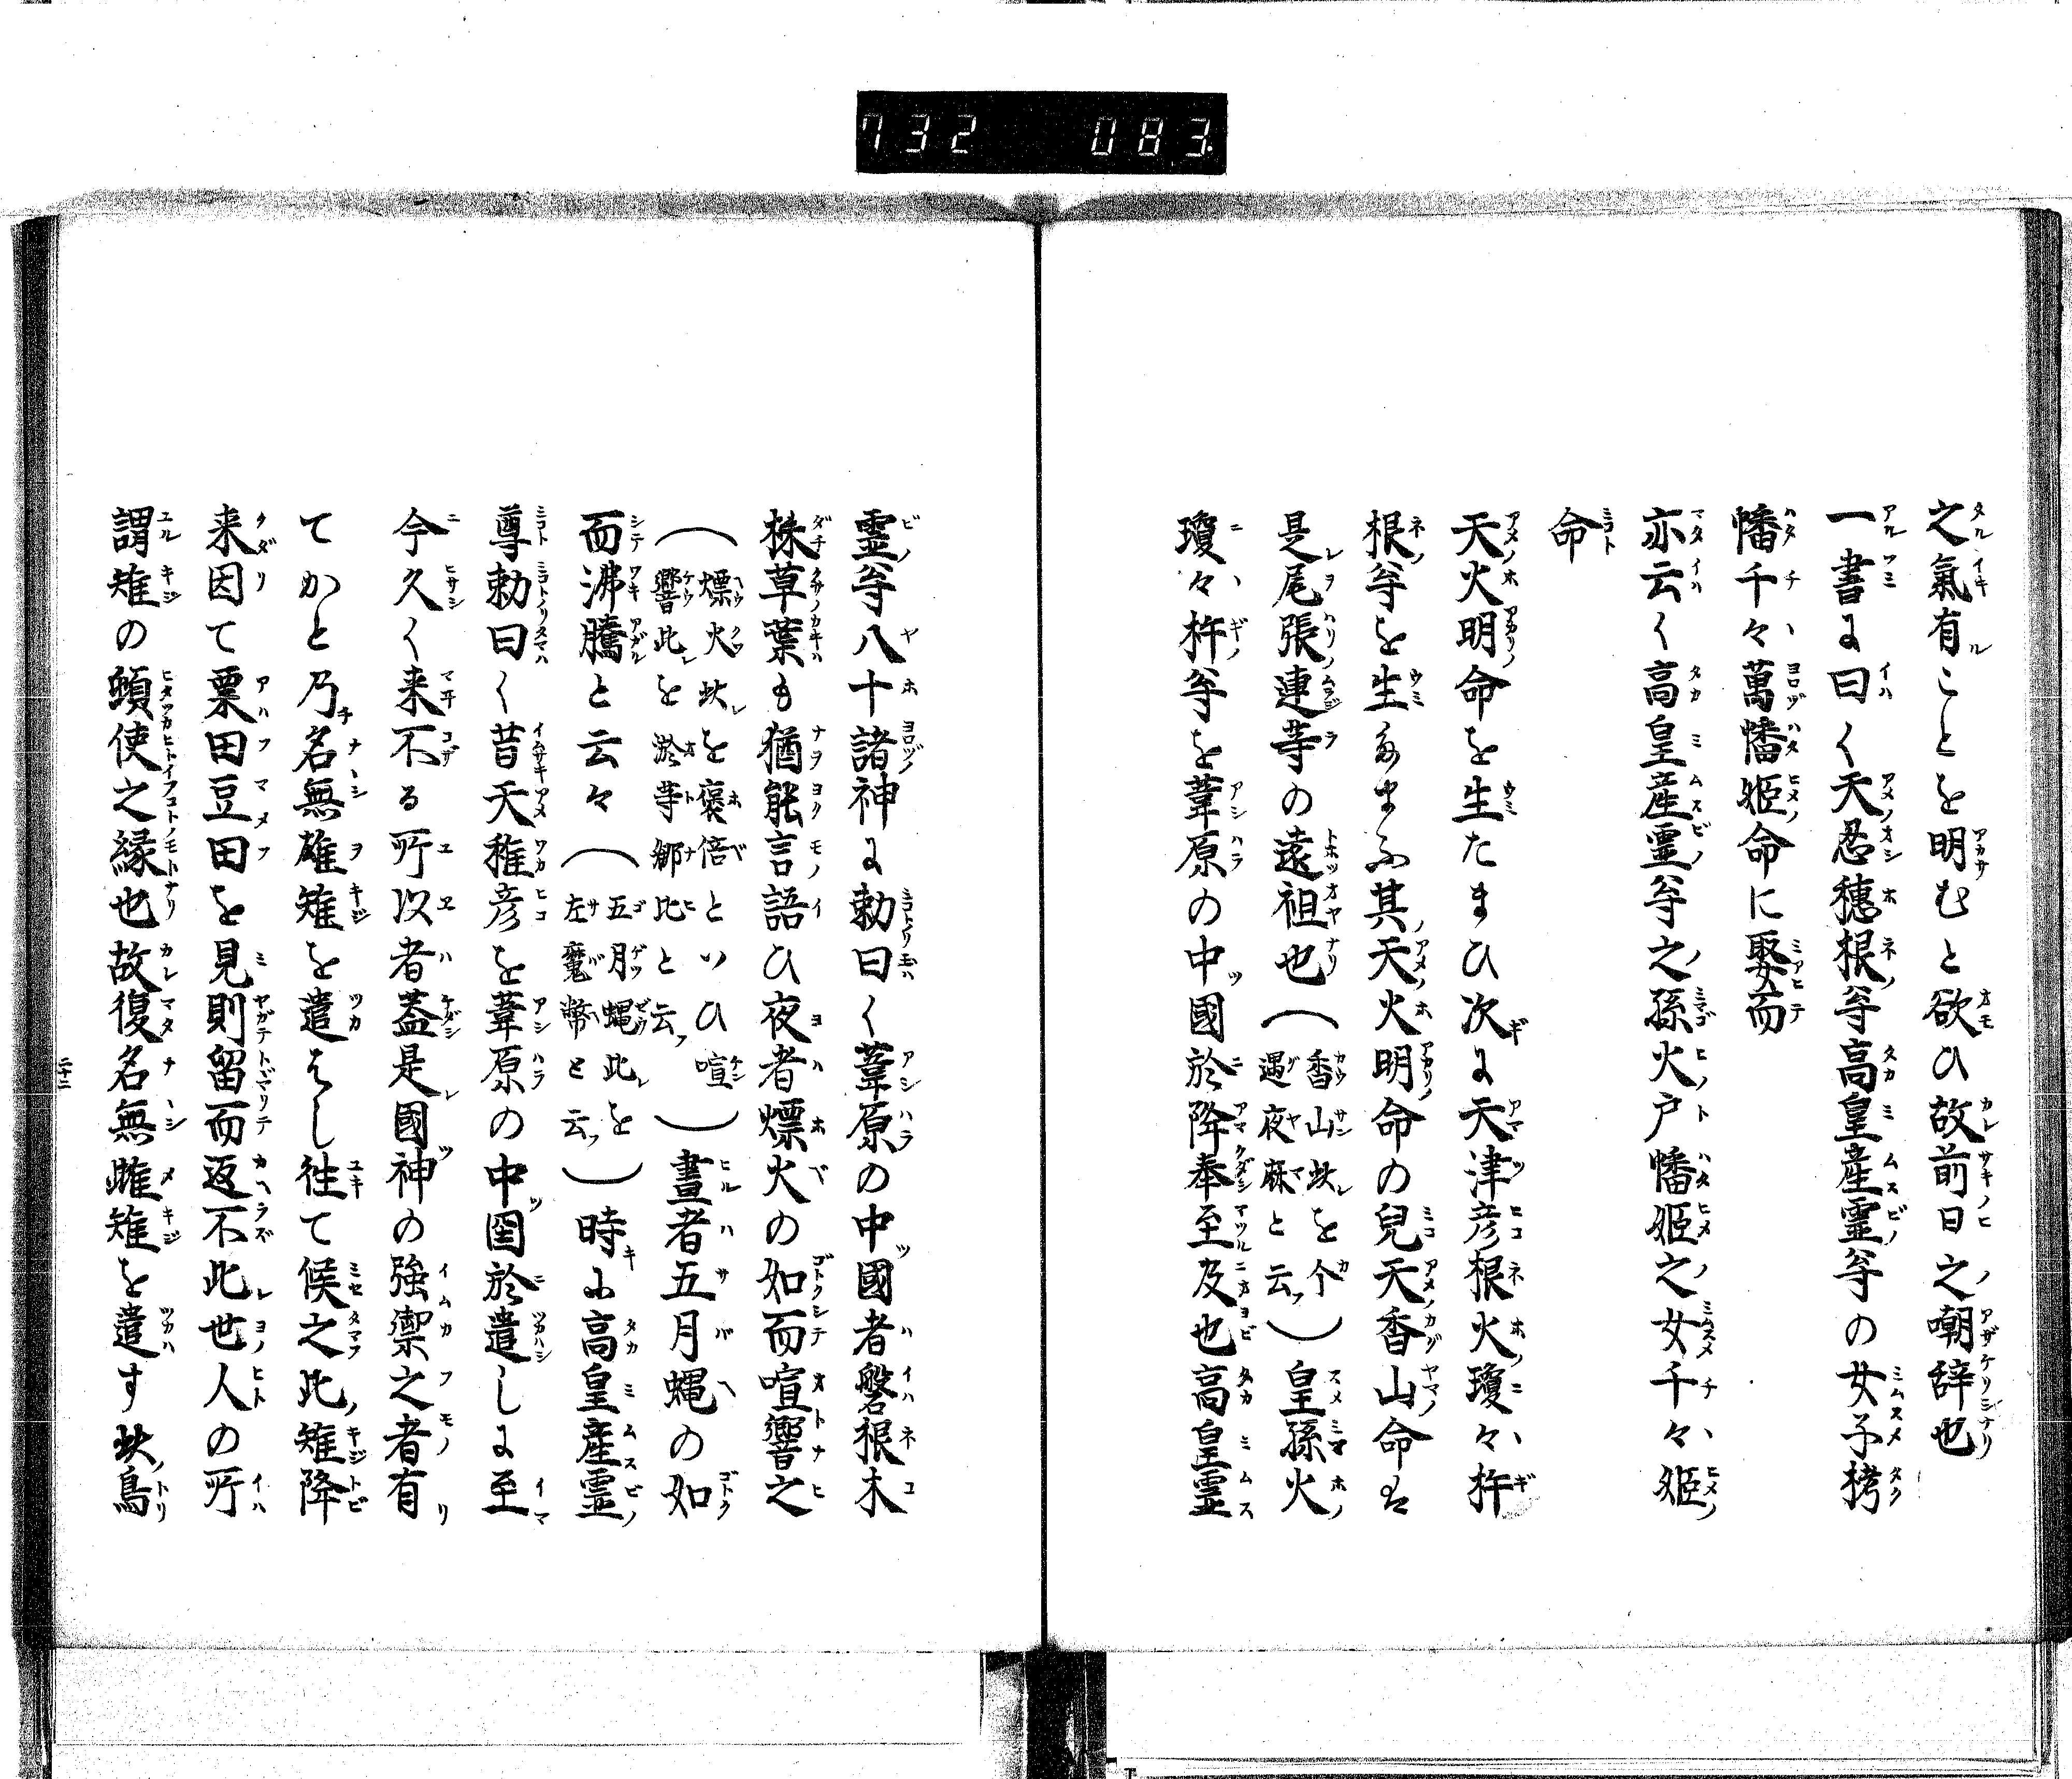 732 083
之氣有ことを明むと欲ひ故前日之嘲辞也
一書に曰く天忍穂根尊高皇産霊尊の女子栲
幡千々萬幡姫命に娶而
亦云く高皇産霊尊之孫火戸幡姫之女千々姫
命
天火明命を生たまひ次に天津彦根火瓊々杵
根尊を生たまふ其天火明命の兒天香山命は
是尾張連等の遠祖也(香山此を个遇夜麻と云)皇孫火
瓊々杵尊を葦原の中國於降奉至及也高皇霊
霊尊八十諸神に勅曰く葦原の中國者磐根木
株草葉も猶能言語ひ夜者熛火の如而喧響之
(熛火此を裒倍といひ喧響此を淤等郷比と云)晝者五月蝿の如
而沸騰と云々(五月蝿此を左魔幣と云)時に高皇産霊
尊勅曰く昔天稚彦を葦原の中国於遣しに至
今久く来不る所以者蓋是國神の強禦之者有
てかと乃名無雄雉を遣はし徃て候之此雉降
来因て粟田豆田を見則留而返不此世人の所
謂雉の頓使之縁也故復名無雌雉を遣す此鳥
二十二